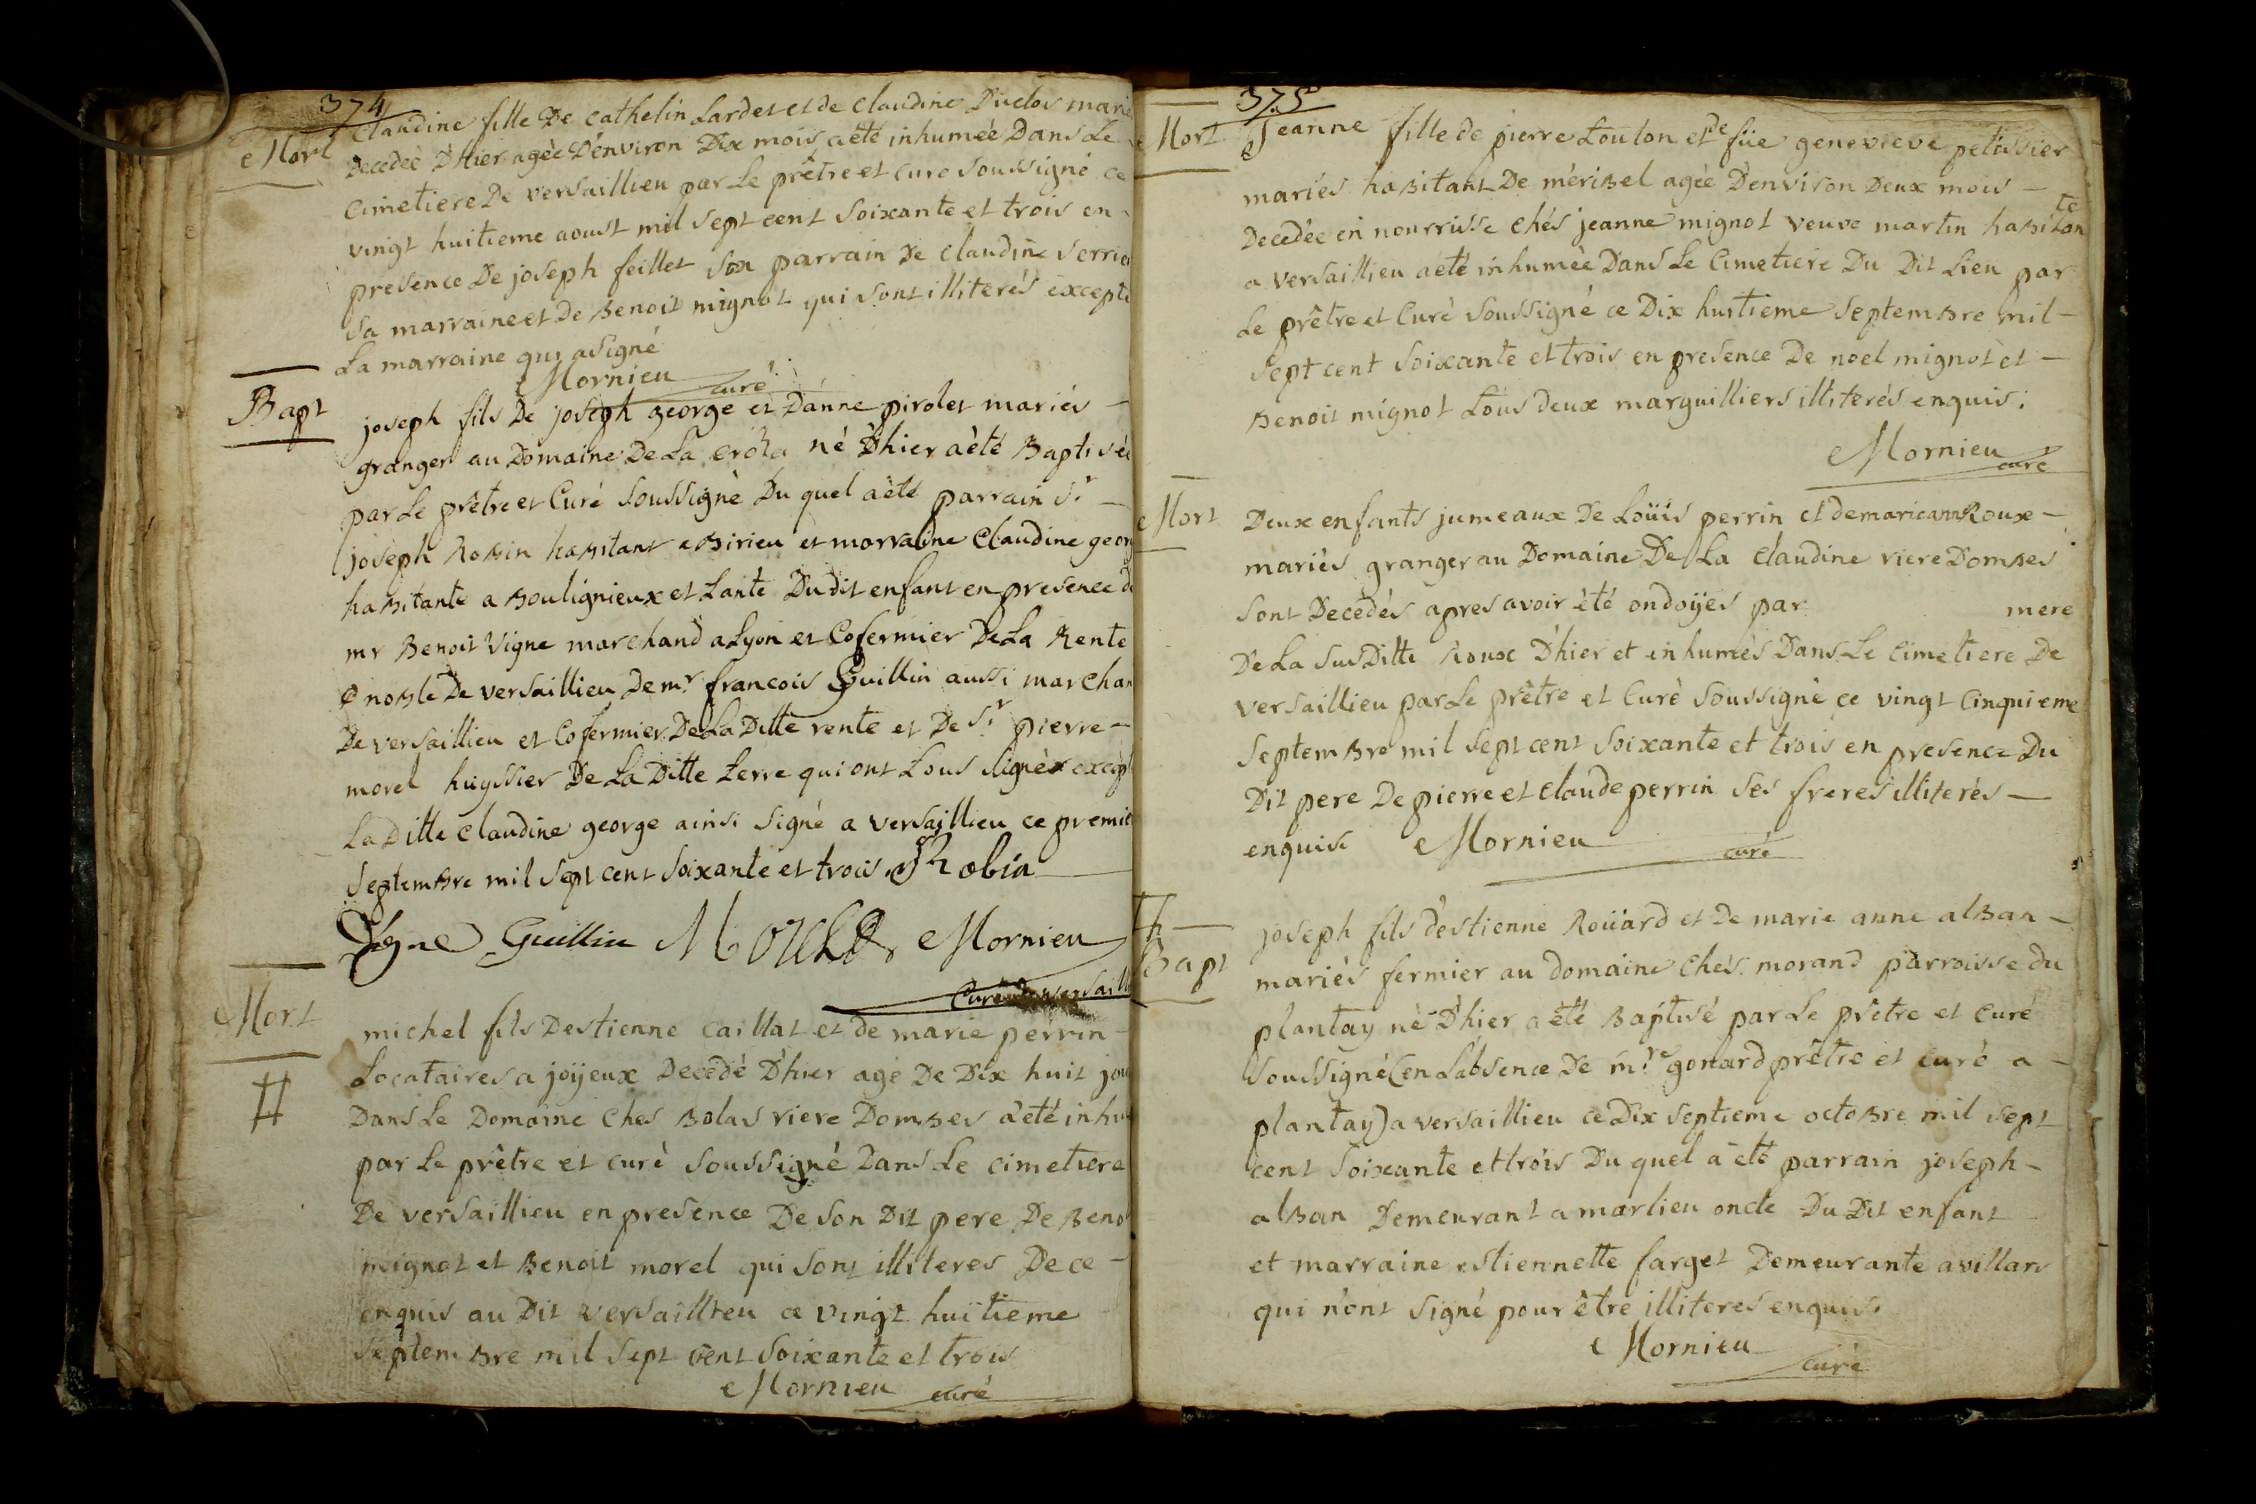 374
Mort
Claudine fille De cathelin Lardet et de claudine Duclos marie
Decedeé D'hier ageè D'environ Dix mois a été inhumeè Dans Le
cimetiere De versaillieu par Le prêtre et curé soussigné ce
vingt huitieme aoust mil sept cent soixante et trois en-
presence De joseph feillet son parrain De claudine
sa marraine et De Benoit mignot qui sont illiterés excepté
La marraine qui a signé
Mornieu curé
Bapt
joseph fils De joseph george et D'anne pirolet mariés -
granger au Domaine De La né D'hier a èté Baptisé
par Le prêtre et Curé soussigné Du quel a èté parrain Sr -
joseph Robin habitant a Birieu et marraine Claudine george
habitante a Boulignieux et tante Du dit enfant en presence de
mr Benoit Vigne marchand a Lyon et Cofermier De La Rente
noble De versaillieu De mr francois Guillin aussi marchan
De versaillieu et Cofermier De La Ditte rente et De Sr pierre -
morel huyssier De La Ditte terre qui ont tous signés except
La Ditte claudine george ainsi signé a versaillieu ce premie
septembre mil sept cent soixante et trois. Robin
Vigne Guillin Morel Mornieu
Curé de versaill
Mort
#
michel fils Destienne caillat et de marie perrin -
Locataires a joÿeux Decedé D'hier agé De Dix huit jou
Dans Le Domaine Ches Bolas riere Dombes a été inhu
par Le prêtre et curè soussigné Dans Le cimetiere
De versaillieu en presence De son Dit pere De Beno
mignot et Benoit morel qui sont illiteres De ce -
enquis au Dit versaillieu ce vingt huitieme
septembre mil sept cent soixante et trois
Mornieu curé
375
Mort
Jeanne fille de pierre Louton et de füe genevieve pelissier
mariés habitant De méribel ageè D'environ Deux mois -
Decedée en nourrisse chés jeanne mignot veuve martin habitante
a versaillieu a été inhumeè Dans Le Cimetiere Du Dit Lieu par
Le prêtre et Curè soussigné ce Dix huitieme septembre mil -
sept cent soixante et trois en presence De noel mignot et -
Benoit mignot tous deux marguilliers illiterés enquis.
Mornieu curé
Mort
Deux enfants jumeaux De Loüis perrin et de marieanne Roux -
mariés granger au Domaine De La claudine riere Dombes
sont Decedés apres avoir èté ondoÿes par mere
De La susDitte Roux D'hier et inhumès Dans Le cimetiere De
versaillieu par Le prêtre et Curè soussignè ce vingt Cinquieme
septembre mil sept cent soixante et trois en presence Du
Dit pere De pierre et claude perrin ses freres illiterés -
enquise Mornieu curé
Bapt
joseph fils d'estienne Roüard et De marie anne alban -
mariés fermier au domaine chés morand parroisse du
plantay né D'hier a été Baptisé par Le prêtre et curé
soussigné (en L'absence De mre gonard prêtre et curé a -
plantay) a versaillieu ce Dix septieme octobre mil sept
cent soixante et trois Du quel a été parrain joseph -
alban Demeurant a marlieu oncle Du Dit enfant
et marraine estiennette farget Demeurante a villars
qui n'ont signé pour être illiteres enquis.
Mornieu curé